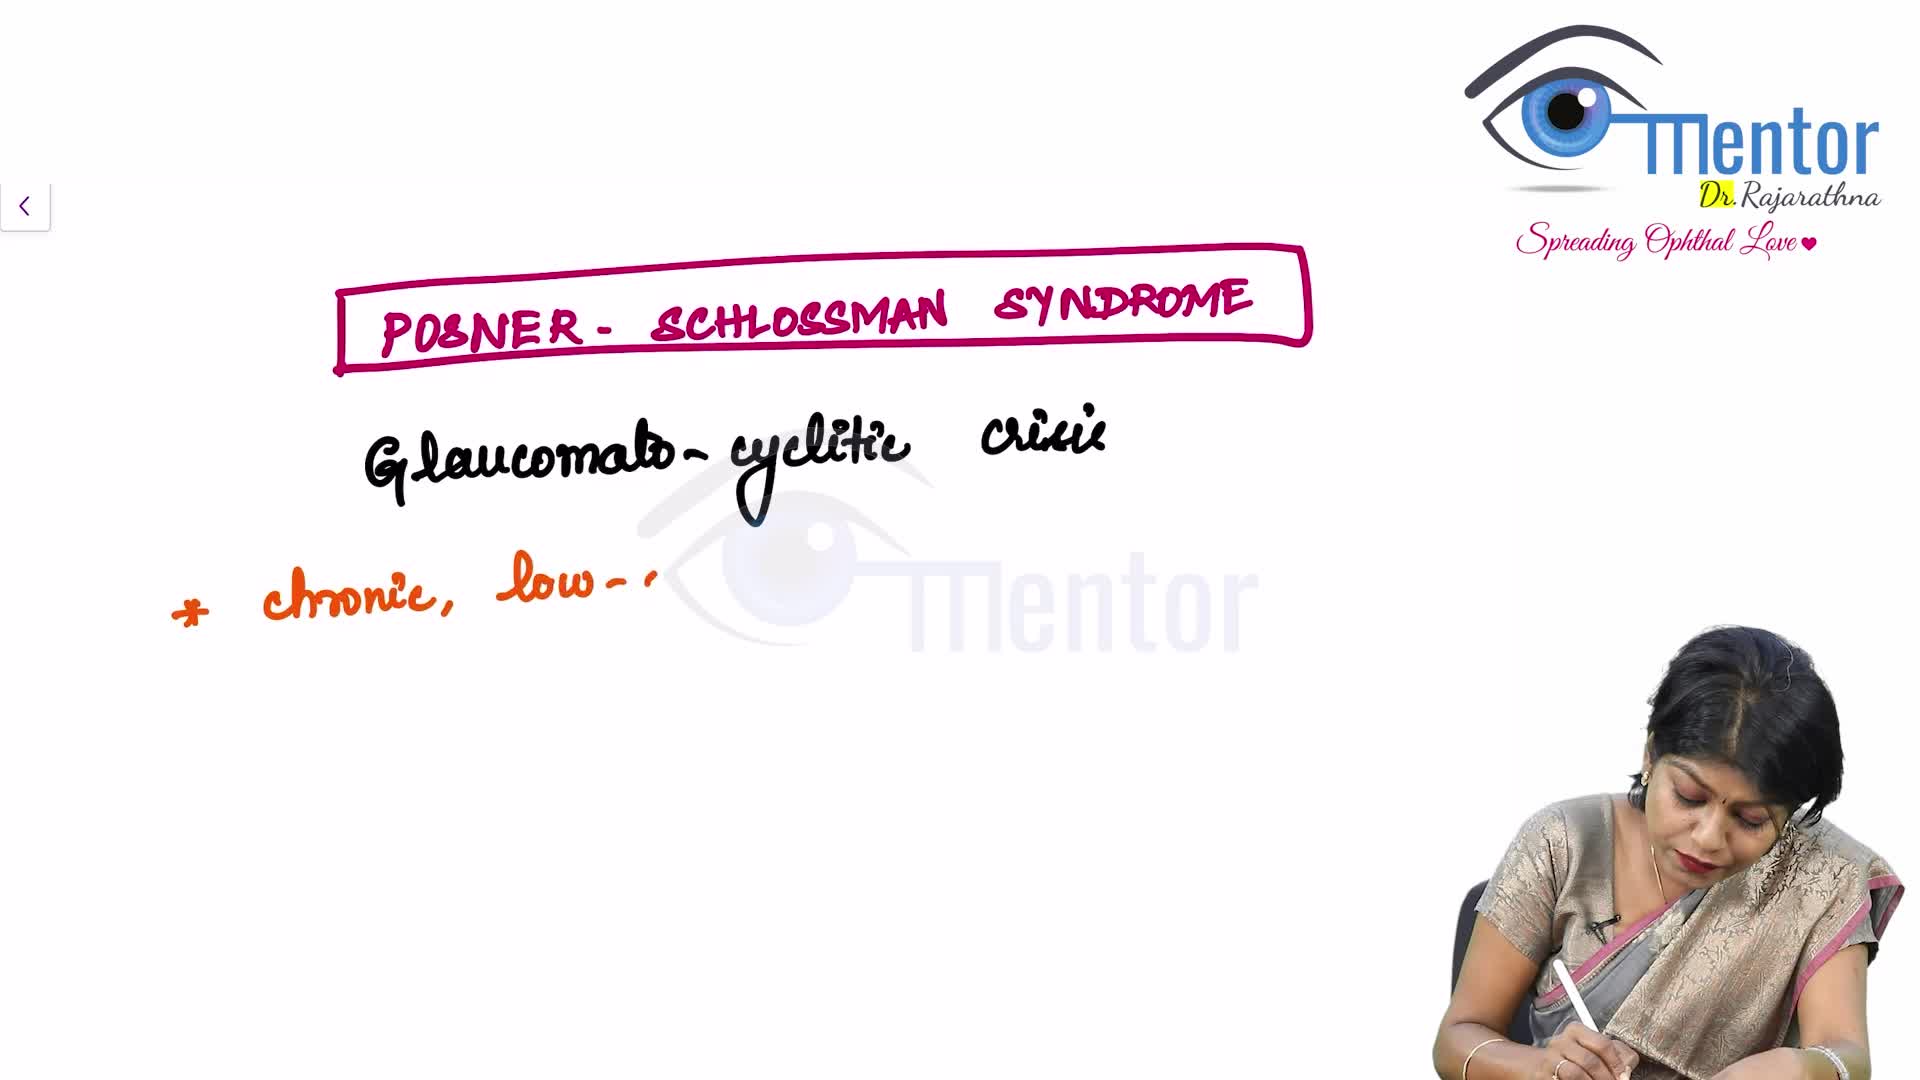 mentor
Dr. Rajarathna
Spreading Ophthal Love
POSNER - SCHLOSSMAN SYNDROME
Glaucomato - cyclitic crisis
* chronic, low-
mentor